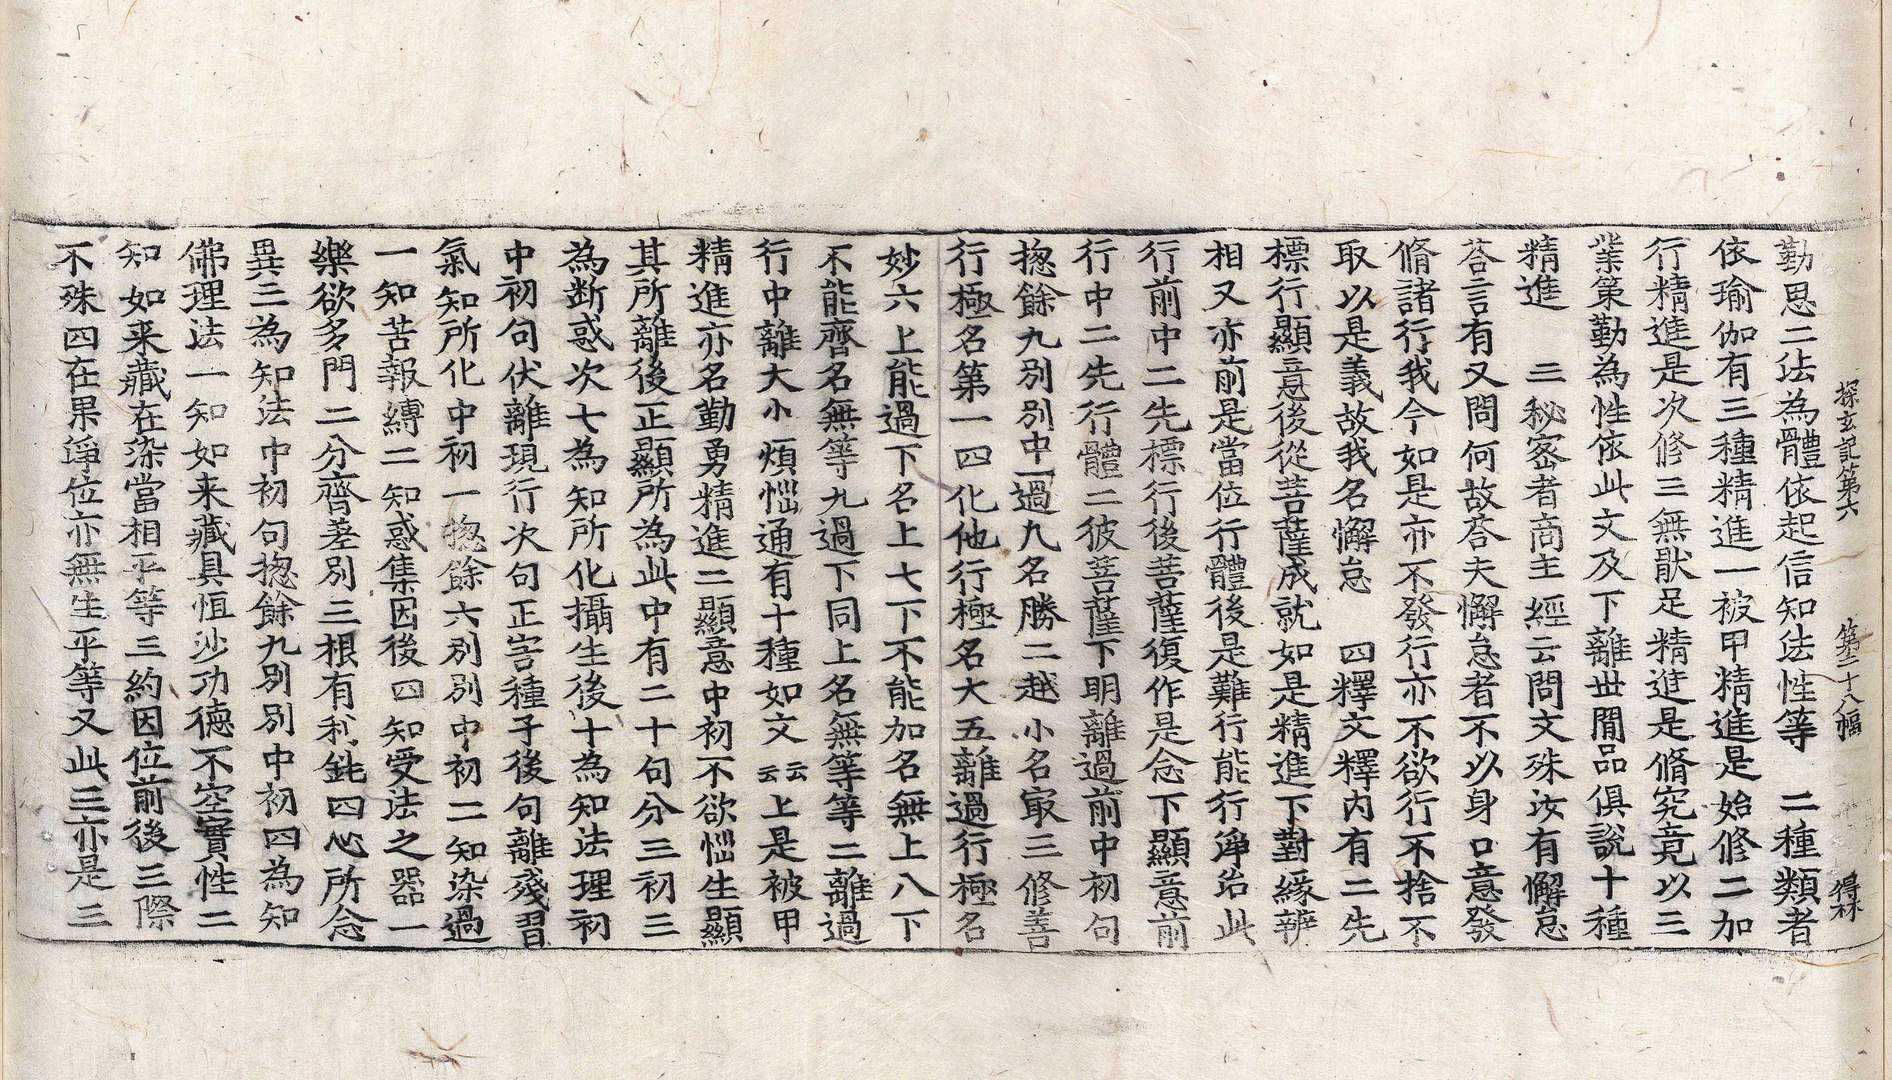 探玄記第六　第二十八幅　得林
勤思二法為體依起信知法性等　二種類者
依瑜伽有三種精進一被甲精進是始修二加
行精進是次修三無猒足精進是脩究竟以三
業策勤為性依此文及下離世間品俱說十種
精進　三秘密者商主經云問文殊汝有懈怠
荅言有又問何故荅夫懈怠者不以身口意發
脩諸行我今如是亦不發行亦不欲行不捨不
取以是義故我名懈怠　四釋文釋內有二先
標行顯意後從菩薩成就如是精進下對緣辨
相又亦前是當位行體後是難行能行淨治此
行前中二先標行後菩薩復作是念下顯意前
行中二先行體二彼菩薩下明離過前中初句
揔餘九別別中一過九名勝二越小名㝡三修善
行極名第一四化他行極名大五離過行極名
妙六上能過下名上七下不能加名無上八下
不能齊名無等九過下同上名無等等二離過
行中離大小煩惱通有十種如文云云上是被甲
精進亦名勤勇精進二顯意中初不欲惱生顯
其所離後正顯所為此中有二十句分三初三
為断惑次七為知所化攝生後十為知法理初
中初句伏離現行次句正害種子後句離殘習
氣知所化中初一揔餘六別別中初二知染過
一知苦報縛二知惑集因後四知受法之器一
樂欲多門二分齊差別三根有利鈍四心所念
異三為知法中初句揔餘九別別中初四為知
佛理法一知如来藏具恒沙功德不空實性二
知如来藏在染當相平等三約因位前後三際
不殊四在果淨位亦無生平等又此三亦是三